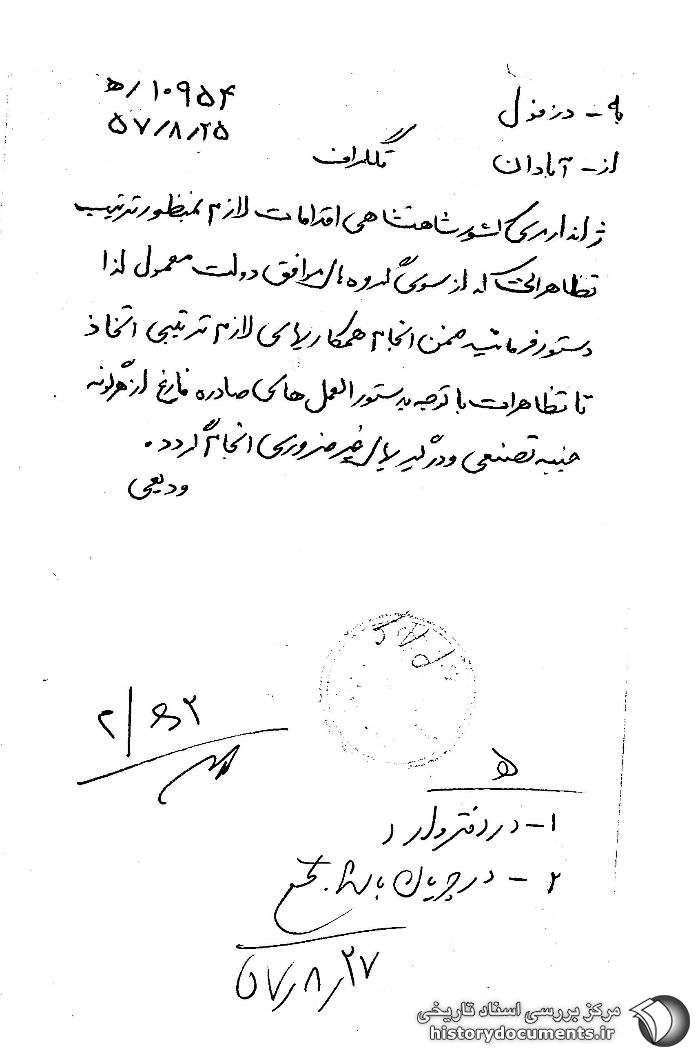 به - دزفول
۱۰۹۵۴/ه
از - آبادان
تلگراف
۵۷/۸/۲۵
ژاندارمری کشور شاهنشاهی اقدامات لازم بمنظور ترتیب
تظاهراتی که از سوی گروه های موافق دولت معمول لذا
دستور فرمائید ضمن انجام همکاریهای لازم ترتیبی اتخاذ
تا تظاهرات با توجه بدستورالعمل های صادره فارغ از هرگونه
جنبه تصنعی و درگیریهای غیر ضروری انجام گردد.
ودیعی
ه
۱- در دفتر وارد
۲- در جریان باشد.
۵۷/۸/۲۷
مرکز بررسی اسناد تاریخی
historydocuments.ir